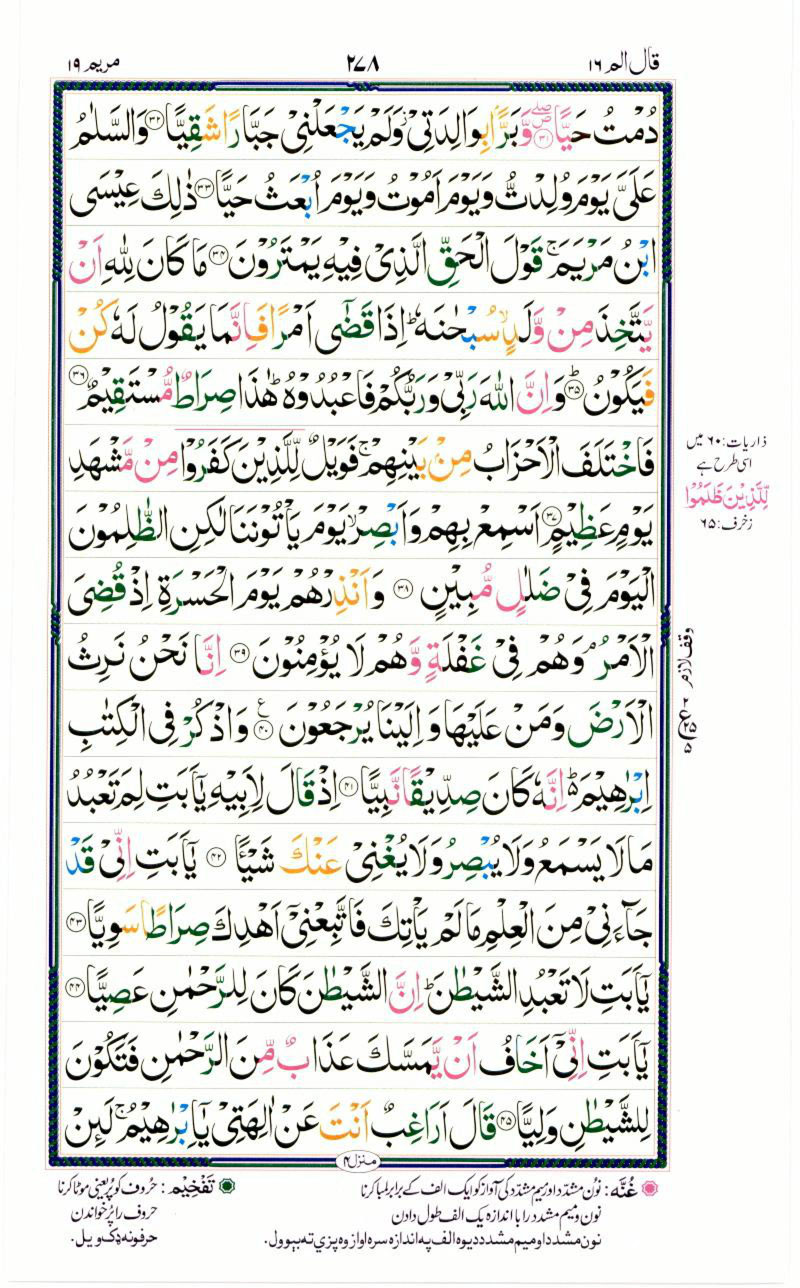 قال الم ١٦
٢٧٨
مريم ١٩
دُمْتُ حَيًّا ۪ۖ‏ ﴿۳۱﴾ وَّبَرًّۢا بِوَالِدَتِىْ وَلَمْ يَجْعَلْنِىْ جَبَّارًا شَقِيًّا ﴿۳۲﴾ وَالسَّلٰمُ
عَلَىَّ يَوْمَ وُلِدْتُّ وَيَوْمَ اَمُوْتُ وَيَوْمَ اُبْعَثُ حَيًّا ﴿۳۳﴾ ذٰلِكَ عِيْسَى
ابْنُ مَرْيَمَ ۚ قَوْلَ الْحَقِّ الَّذِىْ فِيْهِ يَمْتَرُوْنَ ﴿۳۴﴾ مَا كَانَ لِلّٰهِ اَنْ
يَّتَّخِذَ مِنْ وَّلَدٍ ۙ سُبْحٰنَهٗ ؕ اِذَا قَضٰٓى اَمْرًا فَاِنَّمَا يَقُوْلُ لَهٗ كُنْ
فَيَكُوْنُ ؕ ﴿۳۵﴾ وَاِنَّ اللّٰهَ رَبِّىْ وَرَبُّكُمْ فَاعْبُدُوْهُ ؕ هٰذَا صِرَاطٌ مُّسْتَقِيْمٌ ﴿۳۶﴾
فَاخْتَلَفَ الْاَحْزَابُ مِنْۢ بَيْنِهِمْ ۚ فَوَيْلٌ لِّلَّذِيْنَ كَفَرُوْا مِنْ مَّشْهَدِ
يَوْمٍ عَظِيْمٍ ﴿۳۷﴾ اَسْمِعْ بِهِمْ وَاَبْصِرْ ۙ يَوْمَ يَاْتُوْنَنَا لٰكِنِ الظّٰلِمُوْنَ
الْيَوْمَ فِىْ ضَلٰلٍ مُّبِيْنٍ ﴿۳۸﴾ وَاَنْذِرْهُمْ يَوْمَ الْحَسْرَةِ اِذْ قُضِىَ
الْاَمْرُ ۘ وَهُمْ فِىْ غَفْلَةٍ وَّهُمْ لَا يُؤْمِنُوْنَ ﴿۳۹﴾ اِنَّا نَحْنُ نَرِثُ
الْاَرْضَ وَمَنْ عَلَيْهَا وَاِلَيْنَا يُرْجَعُوْنَ ﴿۴۰﴾ وَاذْكُرْ فِى الْكِتٰبِ
اِبْرٰهِيْمَ ؕ اِنَّهٗ كَانَ صِدِّيْقًا نَّبِيًّا ﴿۴۱﴾ اِذْ قَالَ لِاَبِيْهِ يٰۤاَبَتِ لِمَ تَعْبُدُ
مَا لَا يَسْمَعُ وَلَا يُبْصِرُ وَلَا يُغْنِىْ عَنْكَ شَيْئًا ﴿۴۲﴾ يٰۤاَبَتِ اِنِّىْ قَدْ
جَآءَنِىْ مِنَ الْعِلْمِ مَا لَمْ يَاْتِكَ فَاتَّبِعْنِىْۤ اَهْدِكَ صِرَاطًا سَوِيًّا ﴿۴۳﴾
يٰۤاَبَتِ لَا تَعْبُدِ الشَّيْطٰنَ ؕ اِنَّ الشَّيْطٰنَ كَانَ لِلرَّحْمٰنِ عَصِيًّا ﴿۴۴﴾
يٰۤاَبَتِ اِنِّىْۤ اَخَافُ اَنْ يَّمَسَّكَ عَذَابٌ مِّنَ الرَّحْمٰنِ فَتَكُوْنَ
لِلشَّيْطٰنِ وَلِيًّا ﴿۴۵﴾ قَالَ اَرَاغِبٌ اَنْتَ عَنْ اٰلِهَتِىْ يٰۤاِبْرٰهِيْمُ ۚ لَئِنْ
منزل ۴
ذاریات: ۶۰ میں
اسی طرح ہے
لِّلَّذِيْنَ ظَلَمُوْا
زخرف: ۶۵
وقف لازم
غُنَّه: نون مشدد اور میم مشدد کی آواز کو ایک الف کے برابر لمبا کرنا
نون و میم مشدد را با اندازه یک الف طول دادن
نون مشدد او میم مشدد دیوه الف په اندازه سره اواز وه پزي ته بېوول.
تَفْخِيْم: حُروف کو پُر یعنی موٹا کرنا
حروف را پُر خواندن
حرفونه ډک ویل.